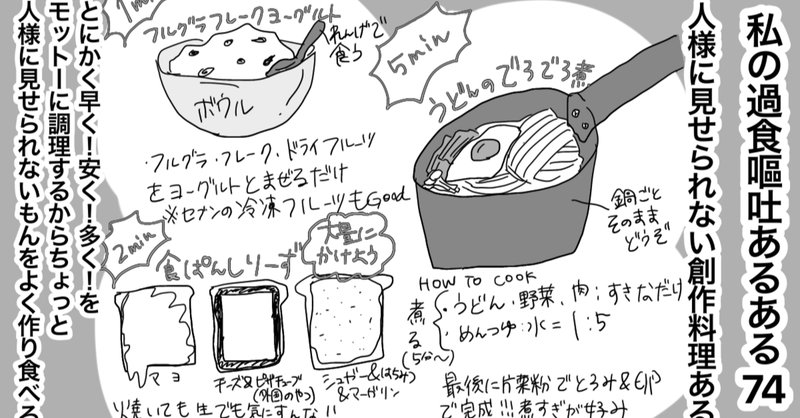 私の過食嘔吐あるある74
人様に見せられない創作料理ある
1min
フルグラフレークヨーグルト
れんげで
食う
ボウル
・フルグラ・フレーク・ドライフルーツ
をヨーグルトとまぜるだけ
※セブンの冷凍フルーツもGood
5min
うどんのでろでろ煮
鍋ごと
そのまま
どうぞ
HOW TO COOK
煮る(5分〜)
・うどん・野菜、肉:すきなだけ
・めんつゆ:水=1:5
最後に片栗粉でとろみ&卵
で完成!!!煮すぎが好み
2min
食ぱんしりーず
大量に
かけよう
マヨ
チーズ&ピザチューブ
(外国のやつ)
シュガー&はちみつ
&マーガリン
焼いても生でも気にすんない
とにかく早く!安く!多く!を
モットーに調理するからちょっと
人様に見せられないもんをよく作り食べる